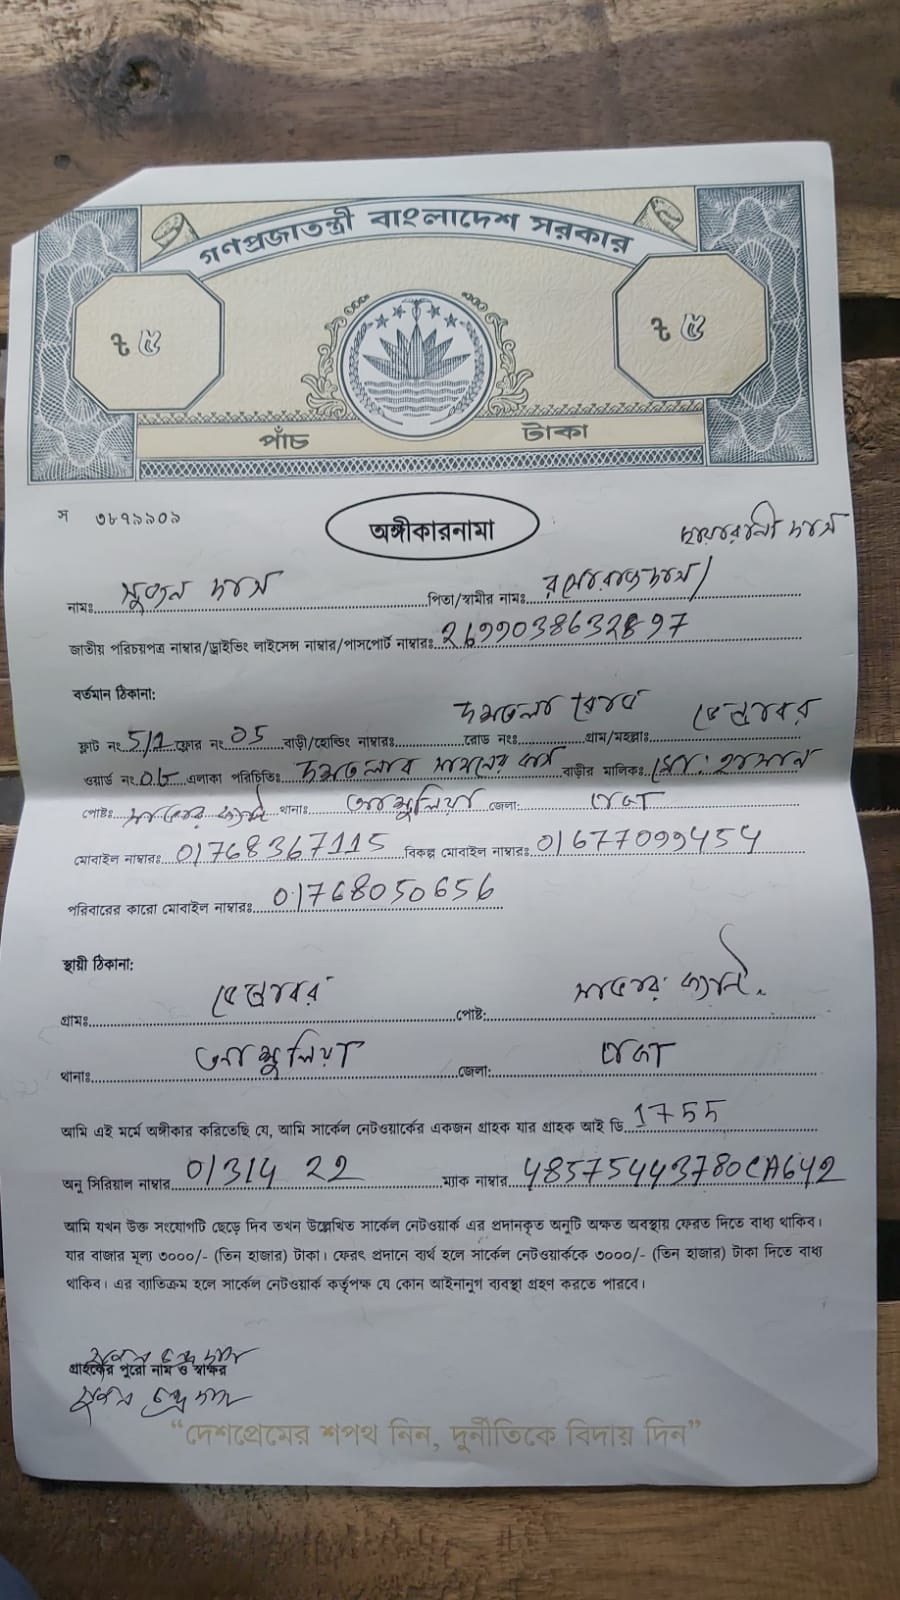 গণপ্রজাতন্ত্রী বাংলাদেশ সরকার
৳ ৫ ৳ ৫
পাঁচ টাকা
স ৩৮৭৯৯০৯
অঙ্গীকারনামা
নামঃ সুজন দাস পিতা/স্বামীর নামঃ
জাতীয় পরিচয়পত্র নাম্বার/ড্রাইভিং লাইসেন্স নাম্বার/পাসপোর্ট নাম্বারঃ
বর্তমান ঠিকানা:
ফ্লাট নং 5/1 ফ্লোর নং 05 বাড়ী/হোল্ডিং নাম্বারঃ রোড নংঃ গ্রাম/মহল্লাঃ
ওয়ার্ড নং এলাকা পরিচিতিঃ বাড়ীর মালিকঃ মো: হাসান
পোষ্টঃ থানাঃ আশুলিয়া জেলা: ঢাকা
মোবাইল নাম্বারঃ 01768367115 বিকল্প মোবাইল নাম্বারঃ 01677099454
পরিবারের কারো মোবাইল নাম্বারঃ 01768050656
স্থায়ী ঠিকানা:
গ্রামঃ পোষ্ট:
থানাঃ আশুলিয়া জেলা: ঢাকা
আমি এই মর্মে অঙ্গীকার করিতেছি যে, আমি সার্কেল নেটওয়ার্কের একজন গ্রাহক যার গ্রাহক আই ডি 1755
অনু সিরিয়াল নাম্বার 01314 22 ম্যাক নাম্বার 485754443780CA642
আমি যখন উক্ত সংযোগটি ছেড়ে দিব তখন উল্লেখিত সার্কেল নেটওয়ার্ক এর প্রদানকৃত অনুটি অক্ষত অবস্থায় ফেরত দিতে বাধ্য থাকিব।
যার বাজার মূল্য ৩০০০/- (তিন হাজার) টাকা। ফেরৎ প্রদানে ব্যর্থ হলে সার্কেল নেটওয়ার্ককে ৩০০০/- (তিন হাজার) টাকা দিতে বাধ্য
থাকিব। এর ব্যতিক্রম হলে সার্কেল নেটওয়ার্ক কর্তৃপক্ষ যে কোন আইনানুগ ব্যবস্থা গ্রহণ করতে পারবে।
গ্রাহকের পুরো নাম ও স্বাক্ষর
"দেশপ্রেমের শপথ নিন, দুর্নীতিকে বিদায় দিন"